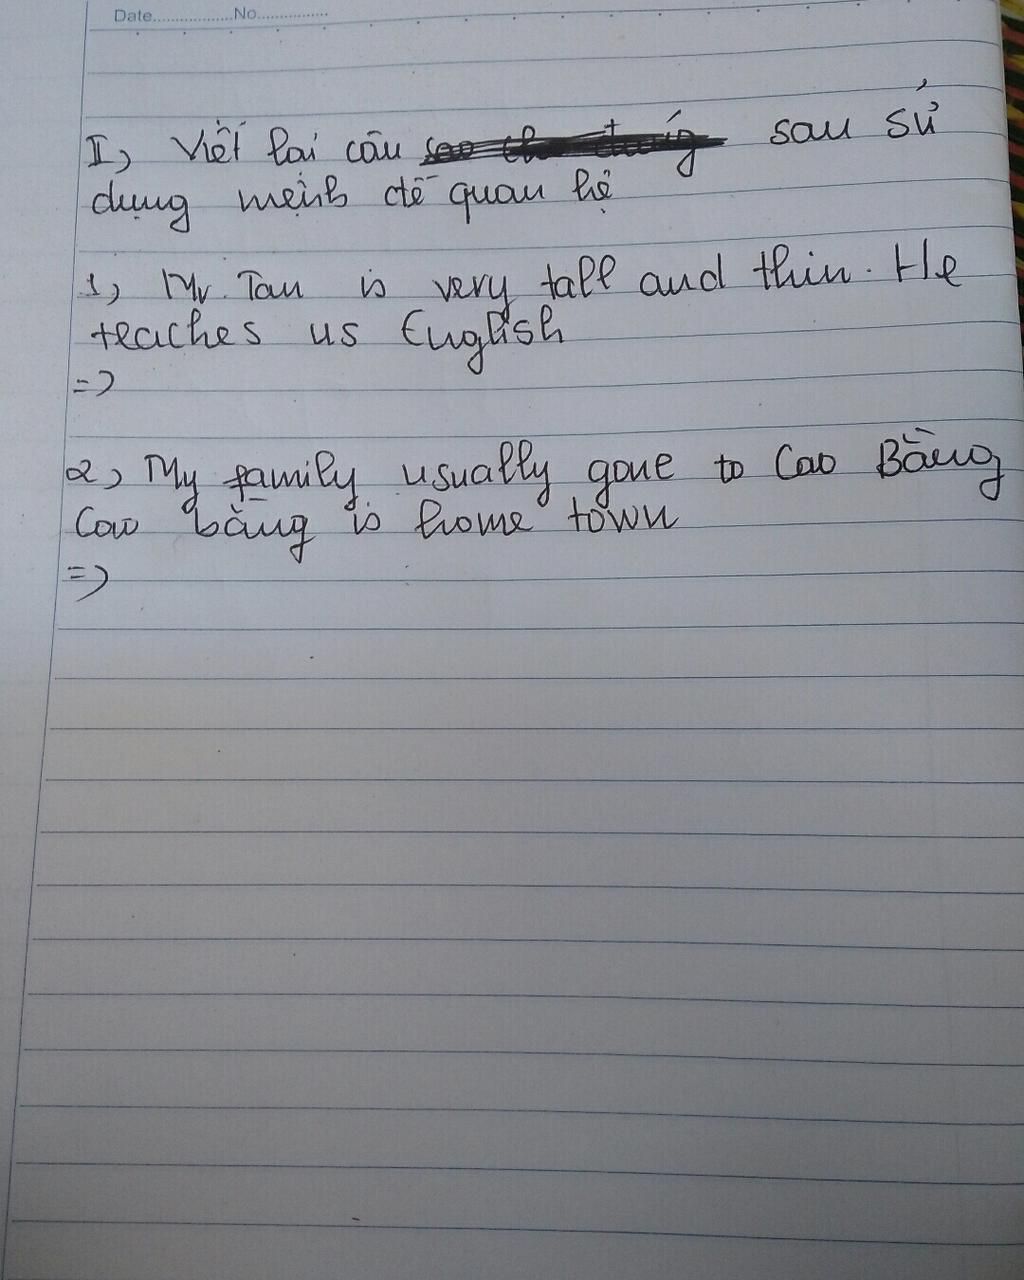 Date.................No...............
II, Viết lại câu sau sử
dụng mệnh đề quan hệ
1, Mr. Tan is very tall and thin. He
teaches us English
=>
2, My family usually gone to Cao Bằng
Cao bằng is home town
=>